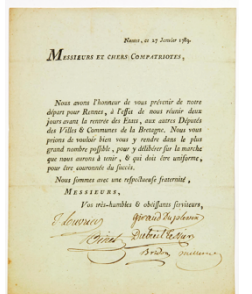 Nantes, ce 27 Janvier 1789.
MESSIEURS ET CHERS COMPATRIOTES,
Nous avons l'honneur de vous prévenir de notre
départ pour Rennes, à l'effet de nous réunir deux
jours avant la rentrée des Etats, aux autres Députés
des Villes & Communes de la Bretagne. Nous vous
prions de vouloir bien vous y rendre dans le plus
grand nombre possible, pour y délibérer sur la marche
que nous aurons à tenir, & qui doit être uniforme,
pour être couronnée du succès.
Nous sommes avec une respectueuse fraternité,
MESSIEURS,
Vos très-humbles & obéissants serviteurs,